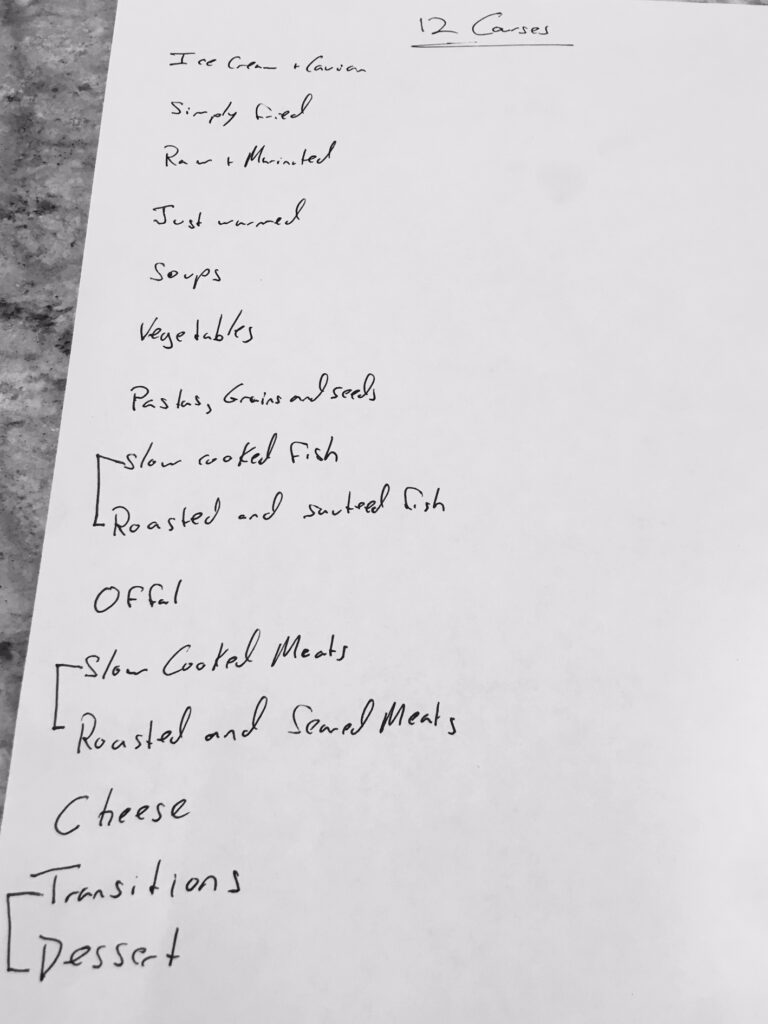 12 Courses
Ice Cream + Caviar
Simply fried
Raw + Marinated
Just warmed
Soups
Vegetables
Pastas, Grains and seeds
Slow cooked fish
Roasted and sauteed fish
Offal
Slow Cooked Meats
Roasted and Seared Meats
Cheese
Transitions
Dessert